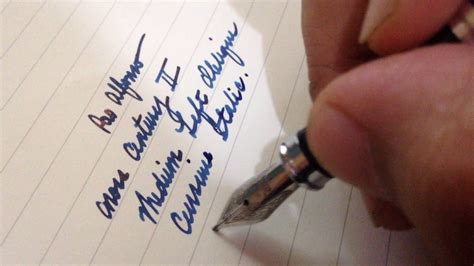 Leo Alfonso
Cross Century II
Medium Left Oblique
Cursive Italic.